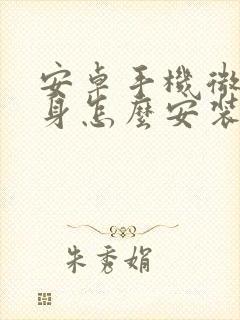 安卓手機微
身怎麼安裝
朱秀娟